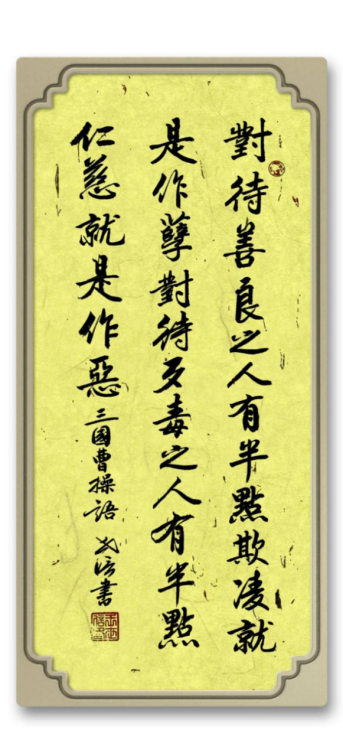 對待善良之人有半點欺凌就
是作孽對待歹毒之人有半點
仁慈就是作惡
三國曹操語
書